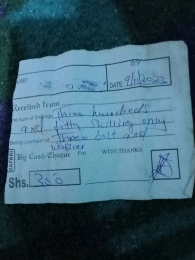 DATE 9/11/2022
Received from
the sum of shillings three hundreds
and fifty shilling only
Being payment of three bolt and
washer
By Cash/Cheque For WITH THANKS
Shs. 350